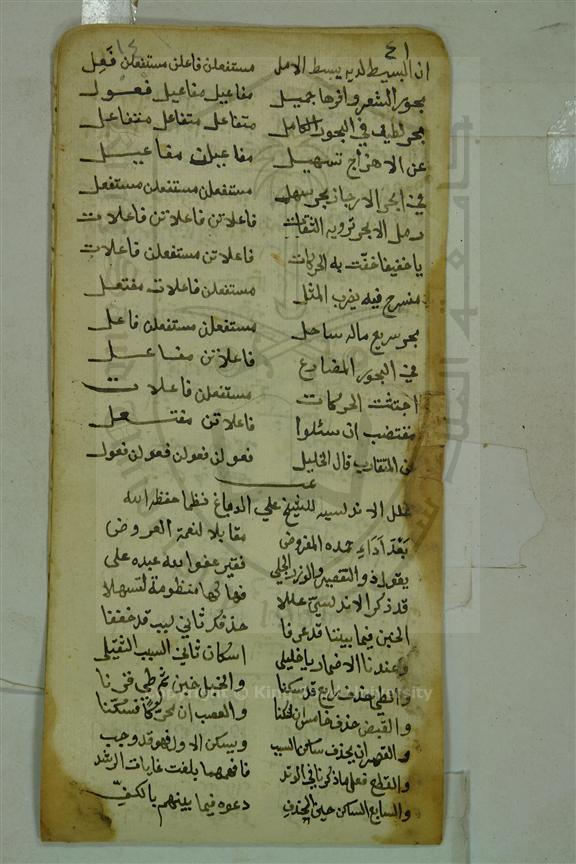 ٤١
١٤
ان البسيط لديه يبسط الامل مستفعلن فاعلن مستفعلن فَعِل
بحور الشعر وافرها جميل مفاعيل مفاعيل فعول
بحر لطيف في البحور الكامل متفاعل متفاعل متفاعل
عن الاهزاج تسهيل مفاعيلن مفاعيل
في ابحر الارجاز بحر سهل مستفعلن مستفعلن مستفعل
رمل الابحر ترويه الثقات فاعلاتن فاعلاتن فاعلات
يا خفيفا خفت به الحركات فاعلاتن مستفعلن فاعلات
منسرح فيه يضرب المثل مستفعلن فاعلات مفتعل
بحر سريع ماله ساحل مستفعلن مستفعلن فاعل
في البحور المضارع فاعلاتن مفاعل
اجتثت الحركات مستفعلن فاعلات
مقتضب ان سئلوا فاعلاتن مفتعل
عن المتقارب قال الخليل فعولن فعولن فعولن فعول
علل الاندلسيه للشيخ علي الدماغ نظما حفظه الله
بَعْدَ اَدَاءِ حمده المفروض مقابلا لنعمة العروض
يقول ذو التقصير والوزر الجلي فقير عفو الله عبده على
قد ذكر الاندلسي عللا فهاكها منظومة لتسهلا
الخبن فيما بيننا قد عرفا حذفك ثاني سبب قد خففا
وعندنا الاضمار يا خليلي اسكان ثاني السبب الثقيل
والطي حذف رابع قد سكنا والخبل خبن ثم طي قرنا
والقبض حذف خامس ان سكنا والعصب ان محركا فسكنا
والقصر ان يحذف ساكن السبب ويسكن الاول فهو قد وجب
والقطع فعل ما ذكر ثاني الوتد فافهمهما بلغت غايات الرشد
والسابع الساكن حين الحذف دعوه فيما بينهم بالكفِّ
Copyright © King University